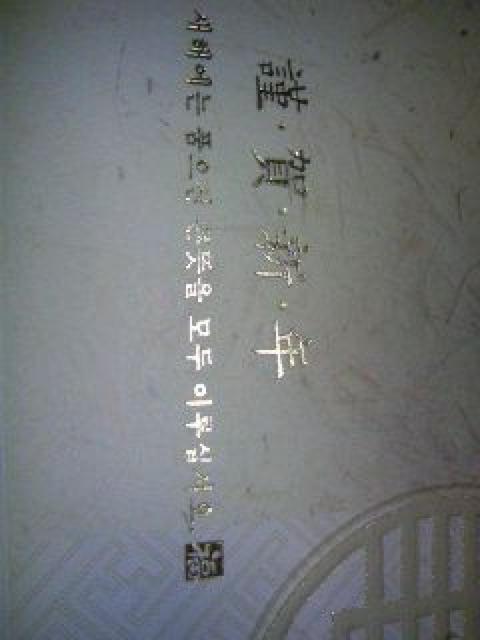 謹·賀·新·年
새해에는 품으신 큰 뜻을 모두 이루십시오.
福